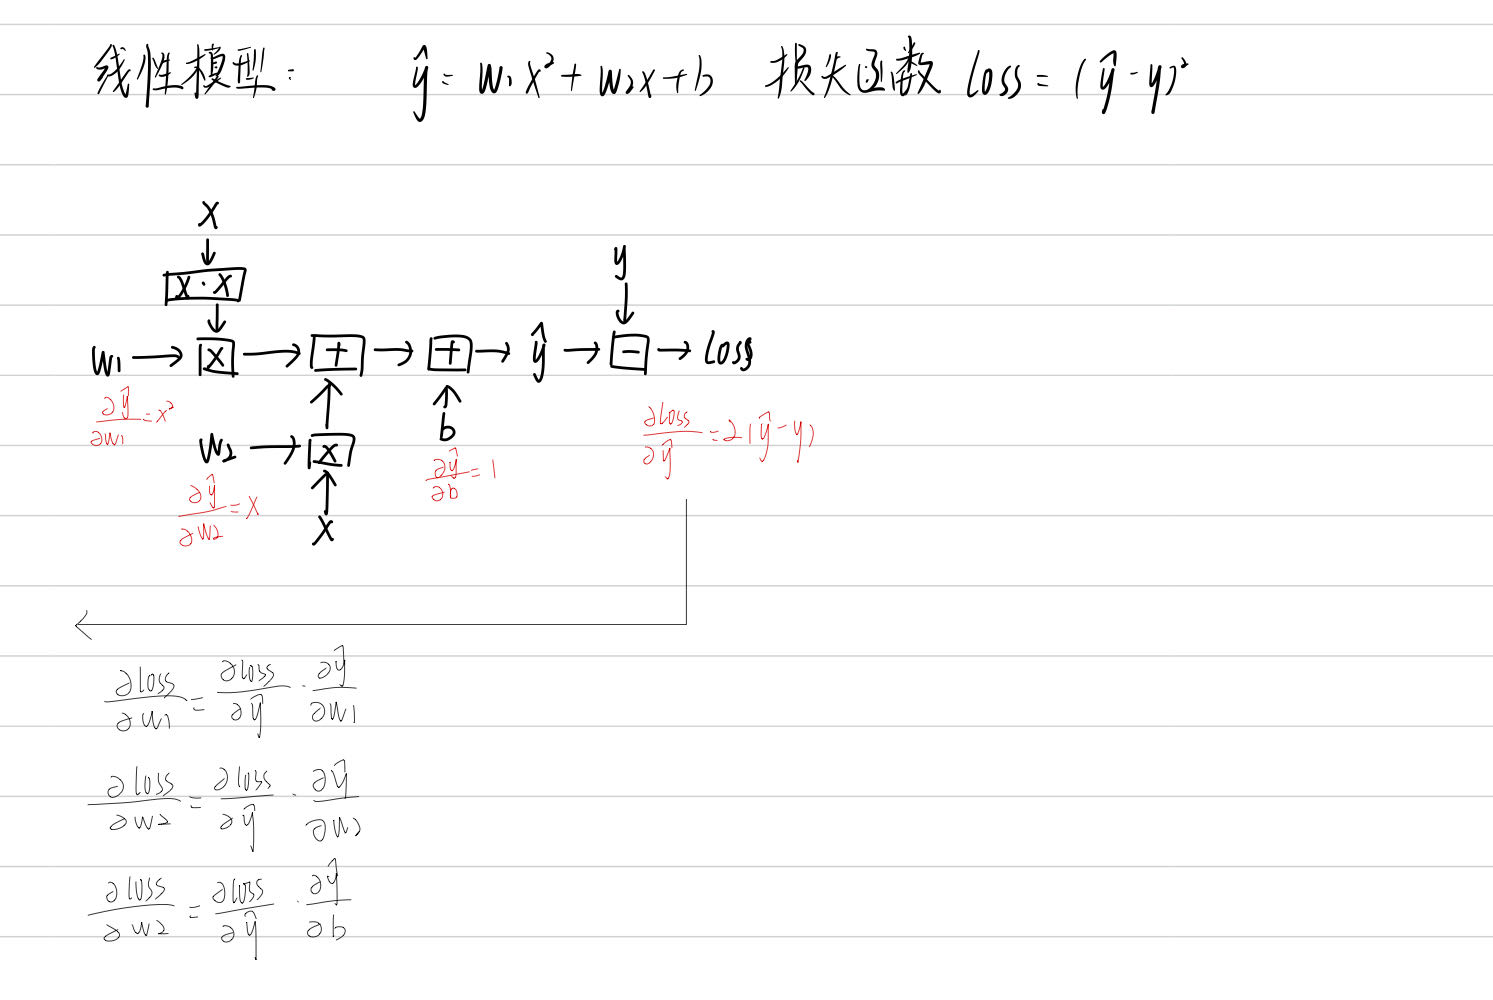 线性模型: ŷ = w₁x² + w₂x + b 损失函数 loss = (ŷ - y)²
x
x · x
y
w1 → x → + → + → ŷ → - → loss
∂ŷ/∂w1 = x²
b
∂loss/∂ŷ = 2(ŷ - y)
w2 → x
∂ŷ/∂b = 1
∂ŷ/∂w2 = x
x
∂loss/∂w1 = ∂loss/∂ŷ · ∂ŷ/∂w1
∂loss/∂w2 = ∂loss/∂ŷ · ∂ŷ/∂w2
∂loss/∂w2 = ∂loss/∂ŷ · ∂ŷ/∂b